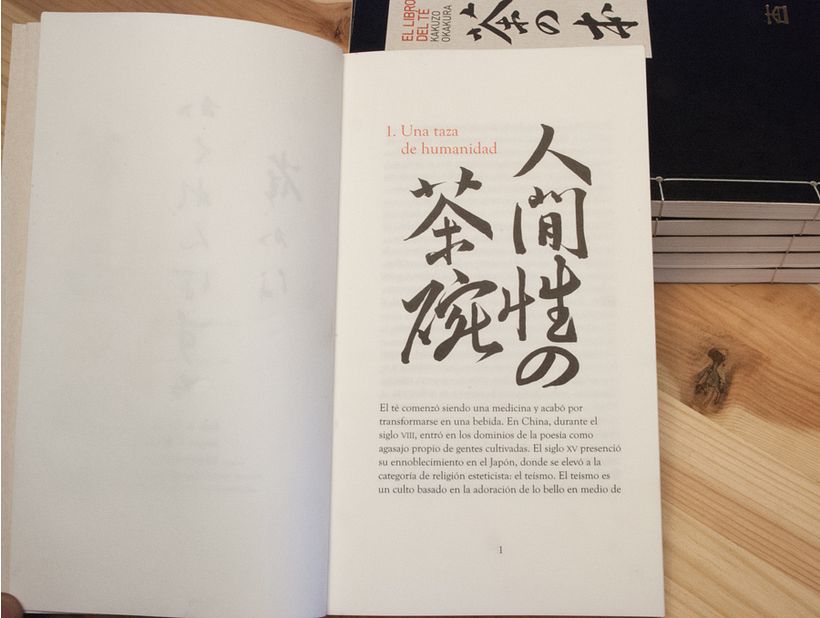 EL LIBRO
DEL TÉ
KAKUZO
OKAKURA
茶の本
1. Una taza
de humanidad
人間性の
茶碗
El té comenzó siendo una medicina y acabó por
transformarse en una bebida. En China, durante el
siglo VIII, entró en los dominios de la poesía como
agasajo propio de gentes cultivadas. El siglo XV presenció
su ennoblecimiento en el Japón, donde se elevó a la
categoría de religión esteticista: el teísmo. El teísmo es
un culto basado en la adoración de lo bello en medio de
1